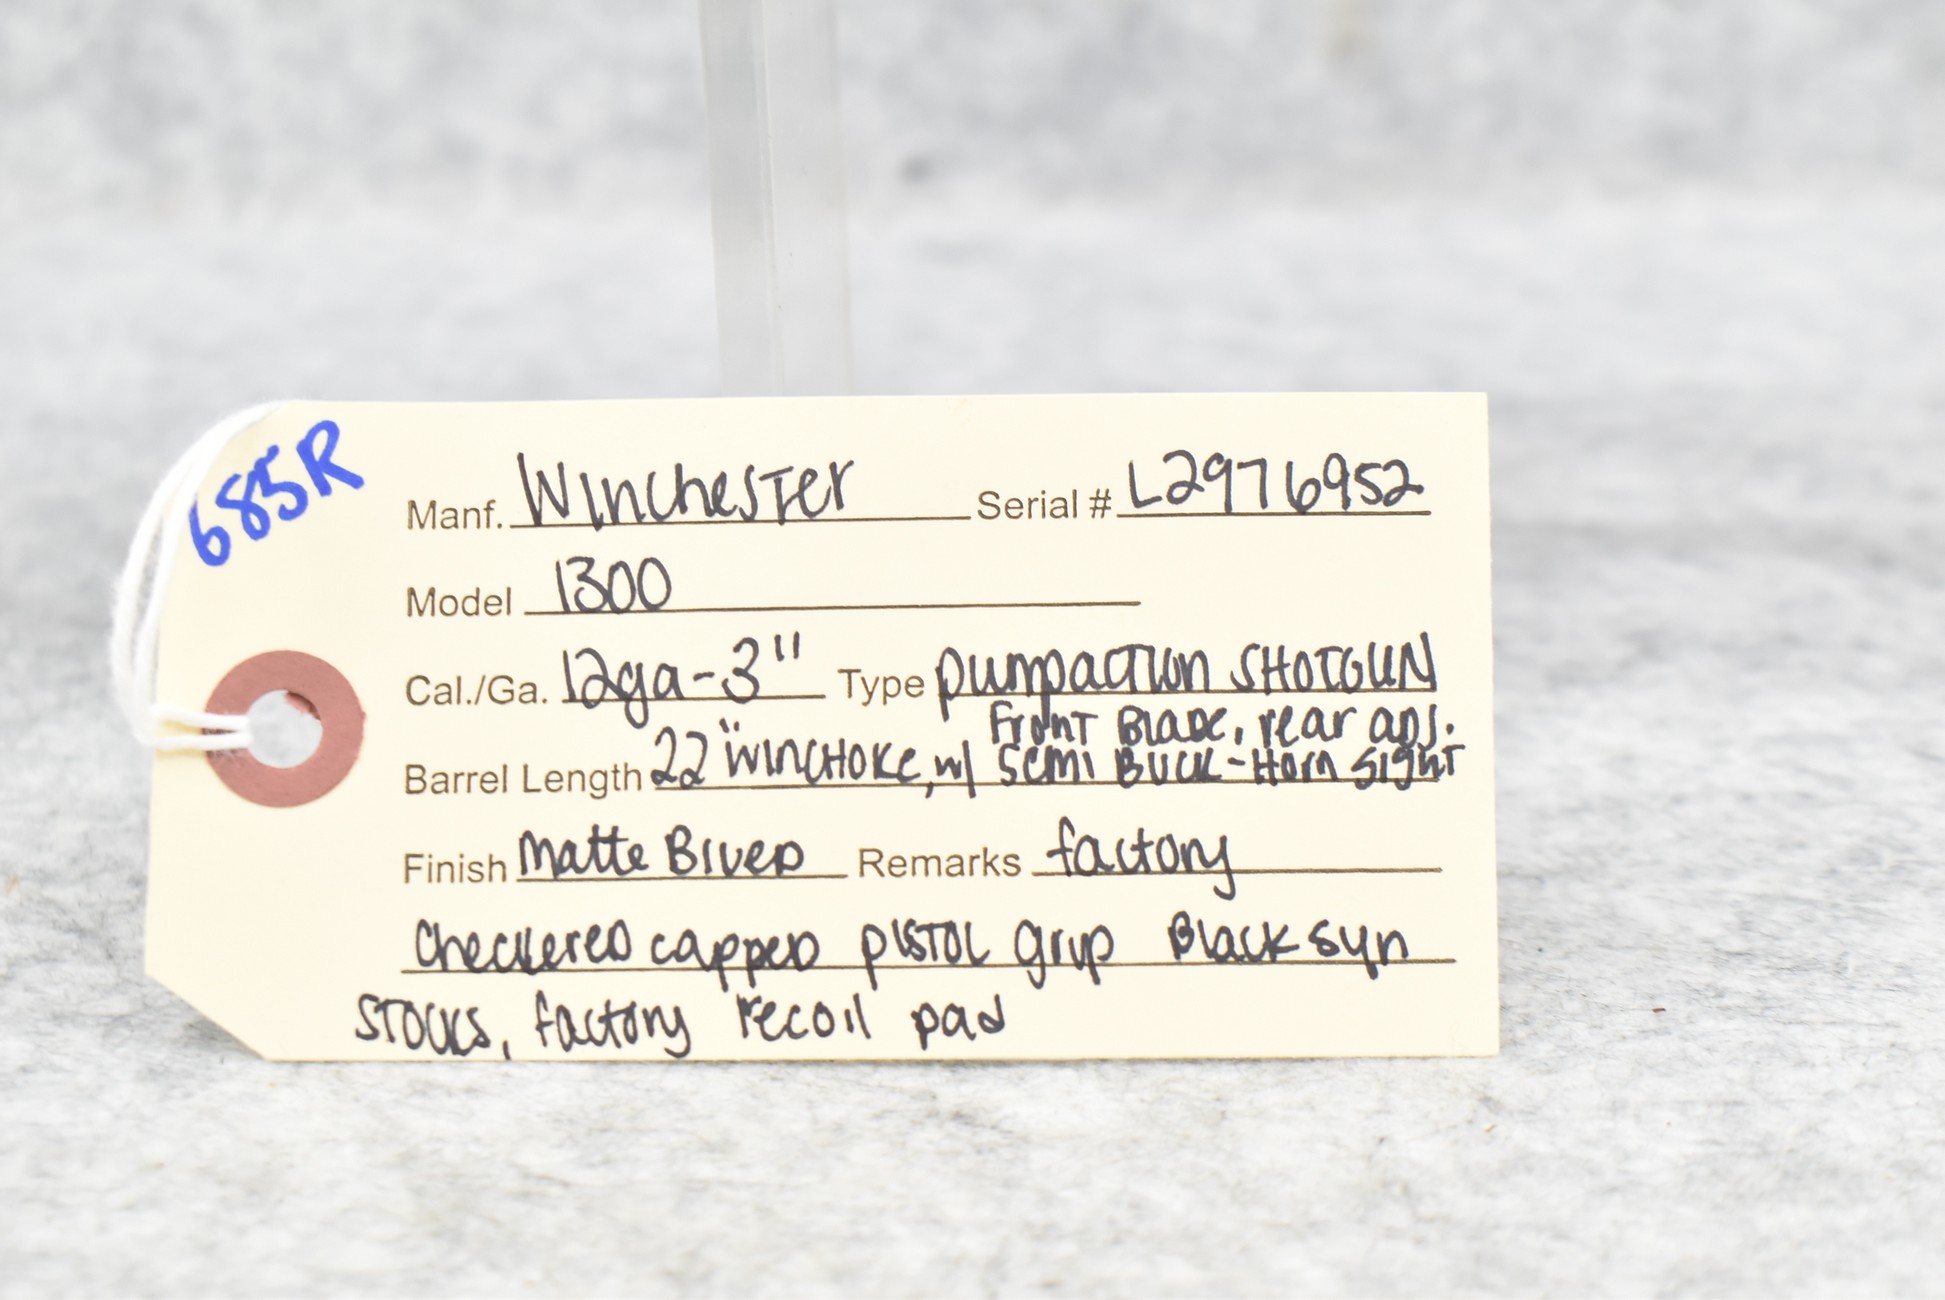 685R
Manf. Winchester Serial # L2976952
Model 1300
Cal./Ga. 12ga-3" Type Pumpaction SHOTGUN
Front Blade, rear adj.
Barrel Length 22" WINCHOKE, w/ Semi Buck-Horn Sight
Finish Matte Blued Remarks factory
checkered capped pistol grip Black syn
stocks, factory recoil pad